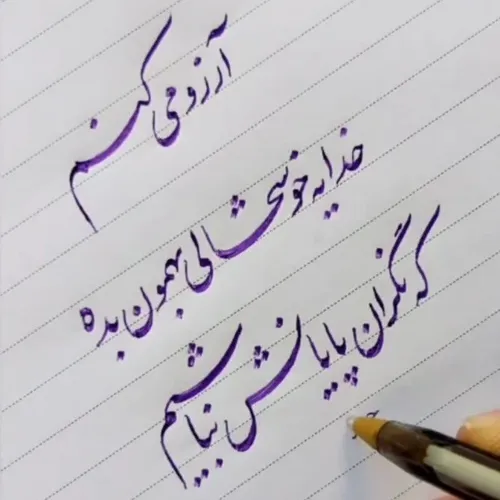 آرزو می کنم
خدا یه خوشحالی بهمون بده
که نگران پایانش نباشیم